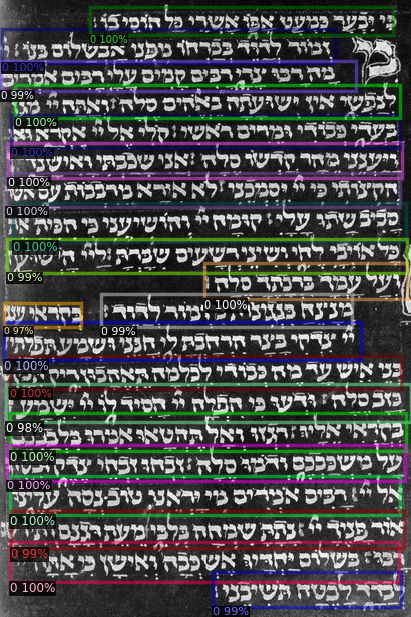 כי יבער כמעט אפו אשרי כל חוסי בו
מזמור לדוד בברחו מפני אבשלום בנו
מה רבו צרי רבים קמים עלי רבים אמרים
לנפשי אין ישועתה באלהים סלה ואתה
בעדי כבודי ומרים ראשי קולי אל יי אקרא
ויענני מהר קדשו סלה אני שכבתי ואישנה
הקיצותי כי יי יסמכני לא אירא מרבבות עם אשר
סביב שתו עלי קומה יי הושיעני כי הכית את
כל איבי לחי שיני רשעים שברת ליי
על עמך ברכתך סלה
למנצח בנגינות מזמור לדוד בקראי
צדקי בצר הרחבת לי חנני ושמע תפלתי
בני איש עד מה כבודי לכלמה תאהבון
כזב סלה ודעו כי הפלה יי חסיד לו יי ישמע
בקראי אליו רגזו ואל תחטאו אמרו בלבבכם
על משכבכם ודמו סלה זבחו זבחי צדק
אל יי רבים אמרים מי יראנו טוב נסה עלינו
אור פניך יי נתתה שמחה בלבי מעת דגנם
בשלום יחדו אשכבה ואישן כי אתה
לבדד לבטח תושיבני